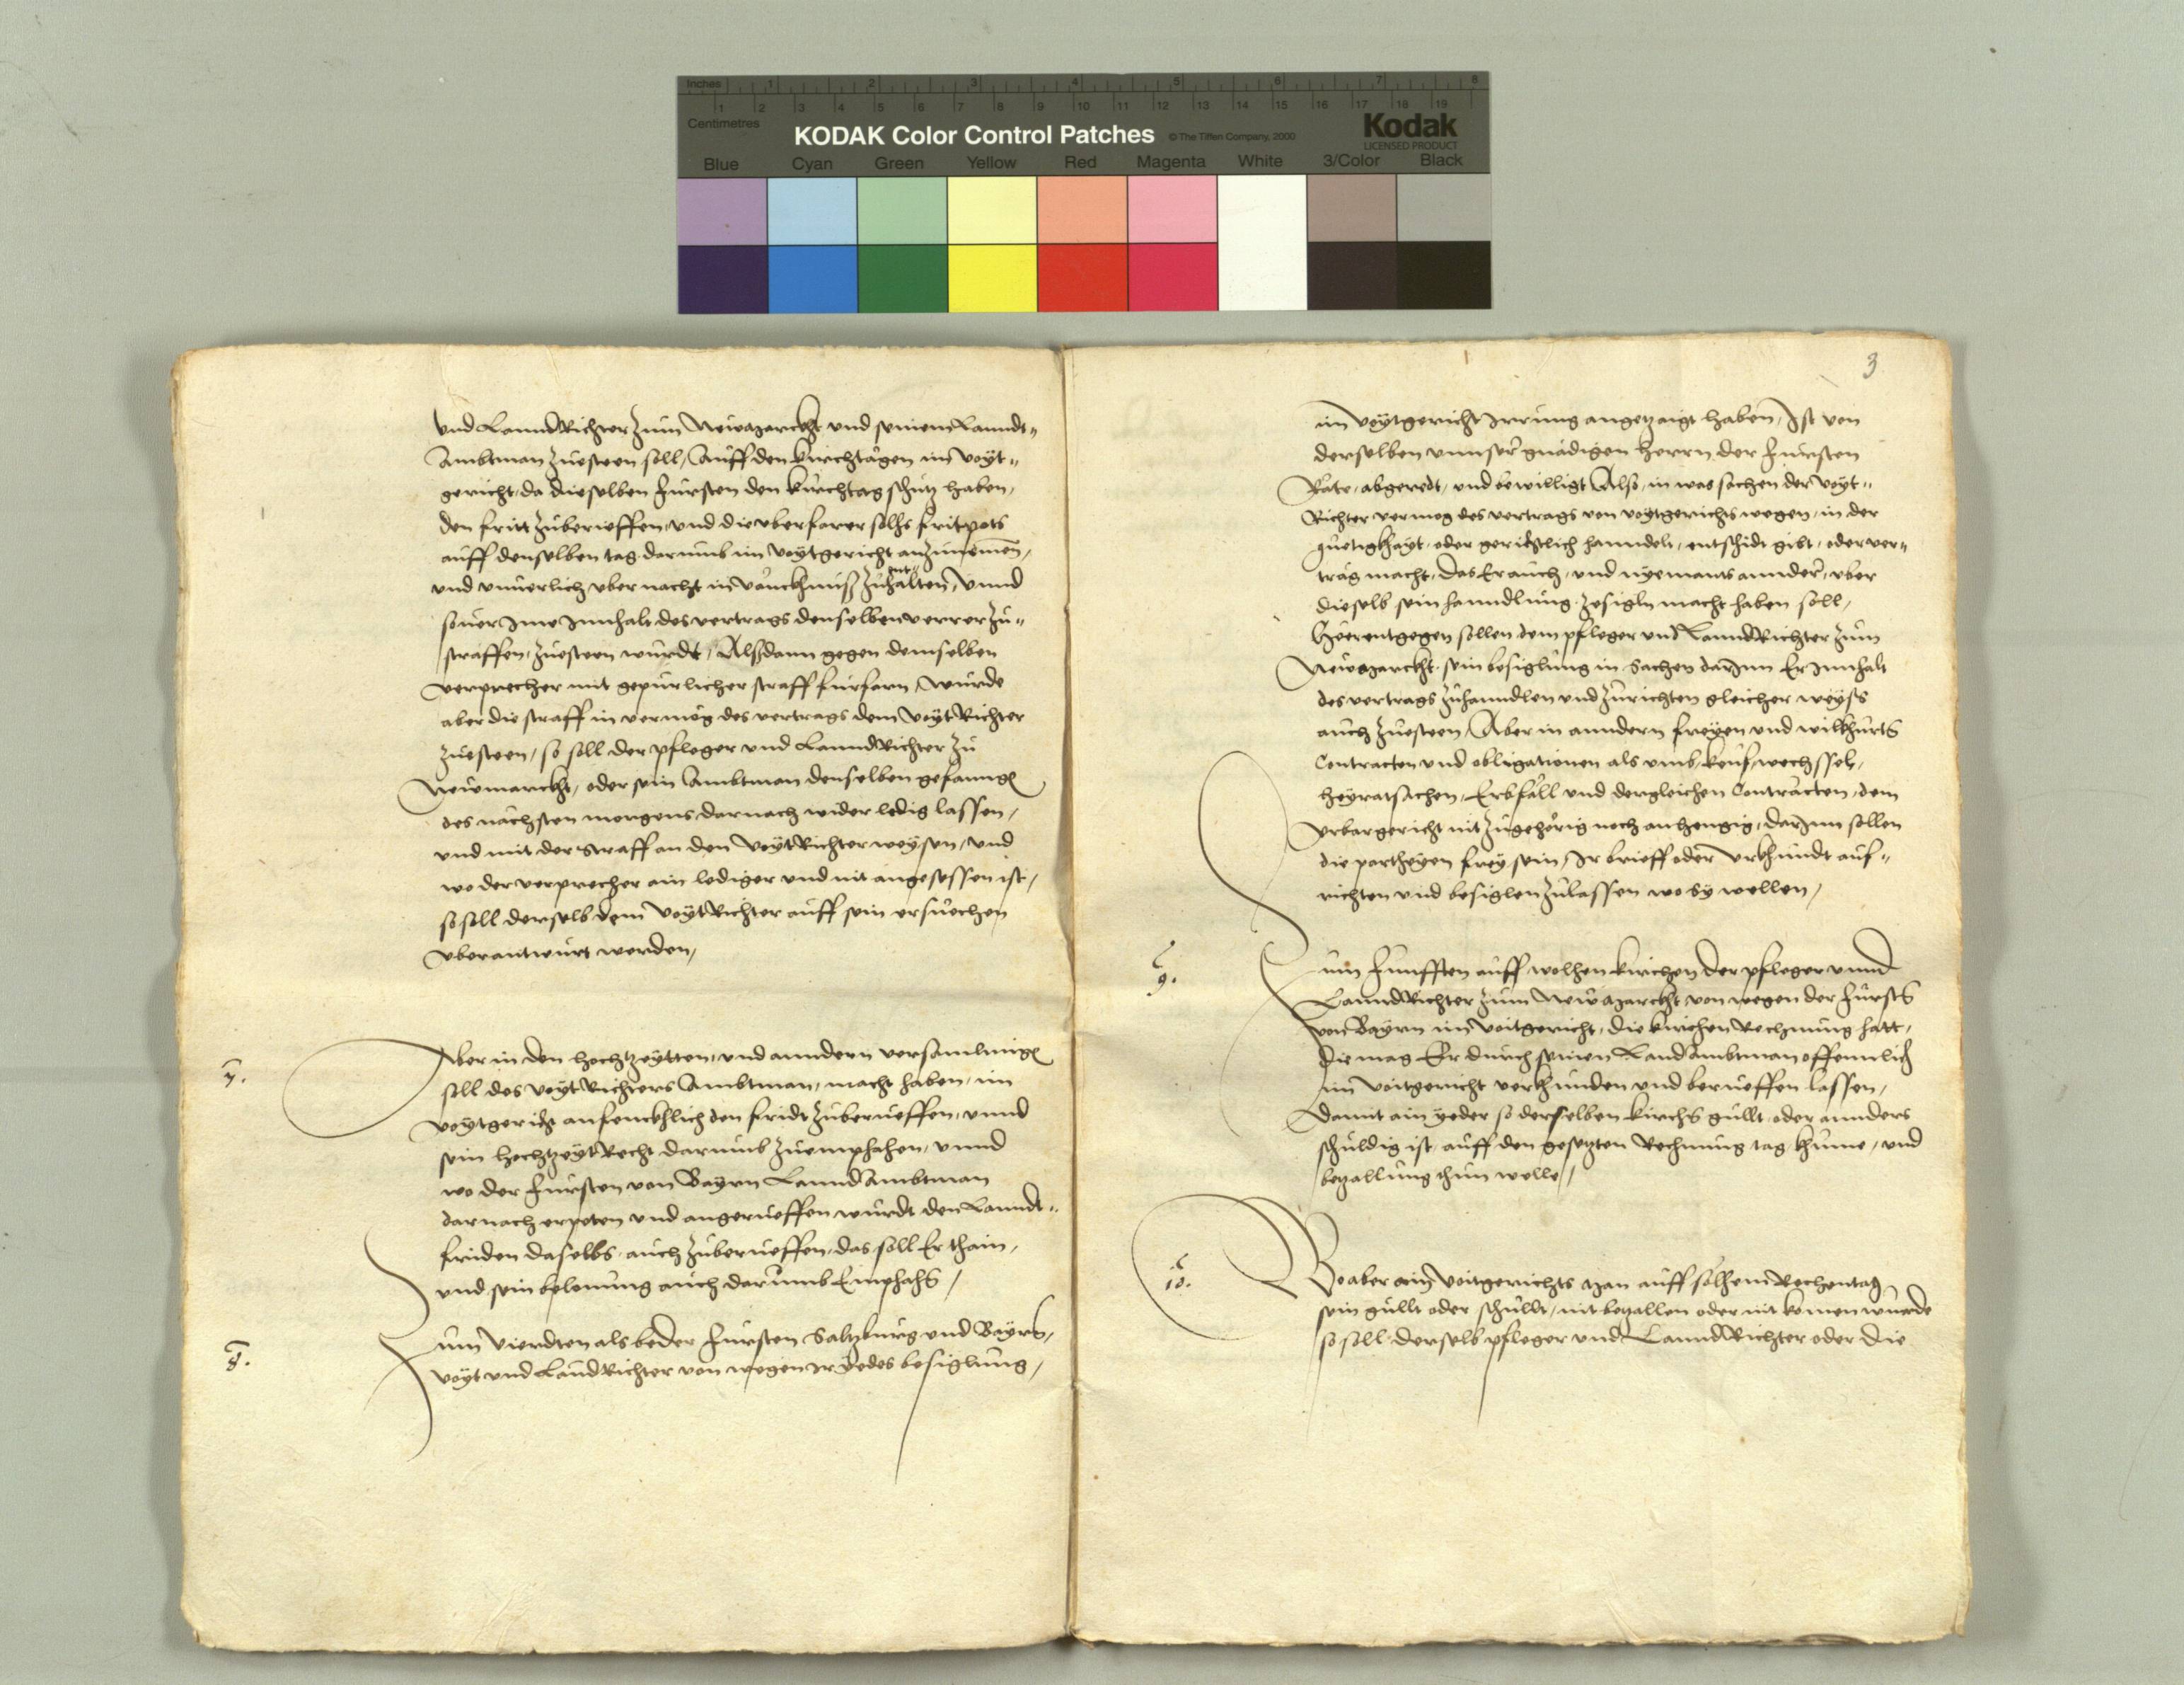 Inches 1 2 3 4 5 6 7 8
1 2 3 4 5 6 7 8 9 10 11 12 13 14 15 16 17 18 19
Centimetres
KODAK Color Control Patches © The Tiffen Company, 2000 Kodak
LICENSED PRODUCT
Blue Cyan Green Yellow Red Magenta White 3/Color Black
vnd LanndRichter zum Newmarckht vnd seinem Lanndt„
Ambtman zuesteen soll, Auff den kirchtägen im voyt„
gericht, da dieselben Fürsten den kirchtag schutz haben,
den fritt zuberüeffen, vnd die vberfarer solhs fritpots
auff denselben tag darumb im voytgericht anzunemen,
vnd vnuerlich vber nacht in vanckhnuß zuhalten, vnnd
ent„
souer Ime Innhalt des vertrags denselben verrer zu„
straffen, zuesteen wurdt, Alßdann gegen demselben
verprecher mit gepürlicher straff fürfarn, wurde
aber die straff in vermög des vertrags dem voyt Richter
zuesteen, so soll der pfleger vnd LanndRichter zu
Newmarckht, oder sein Ambtman denselben gefanngen
des nächsten morgens darnach wider ledig lassen,
vnd mit der Straff an den VoytRichter weysen, vnd
wo der verprecher ain lediger vnd nit angesessen ist,
so soll derselb dem VoytRichter auff sein ersuechen
vberantwurt werden,
7.
Aber in den hochtzeytten, vnd anndern versamlungen
soll des voytRichters Ambtman, macht haben, im
voytgericht anfenckhlich den fridt zuberüeffen, vnnd
sein hochtzeyt Recht darumb zuempfahen, vnnd
wo der Fürsten von Bayrn LanndAmbtman
darnach erpeten vnd angerüeffen wurdt den Lanndt„
friden daselbs, auch zuberüeffen, das soll Er thuin,
vnd sein belonung auch darumb Emphahen,
8.
Zum vierdten als beder Fürsten Saltzburg vnd Bayrn,
voyt vnd LandRichter von wegen Ir yedes besiglung,
3
im voytgericht Irrung angetzaigt haben, Ist von
derselben vnnser gnädigen herrn der Fürsten
Räte, abgeredt, vnd bewilligt Also, in was sachen der Voyt„
Richter vermog des vertrags von voytgerichts wegen, in der
güetigkhayt, oder gerichtlich hanndelt, entschidt gibt, oder ver„
träg macht, das Er auch, vnd nyemants annder, vber
dieselb sein hanndlung, zesigln macht haben soll,
Hierentgegen sollen dem pfleger vnd LanndRichter zum
Newmarckht, sein besiglung in Sachen darInn Er Innhalt
des vertrags zuhanndlen vnd zurichten gleicher weyss
auch zuesteen, Aber in anndern freyen vnd wilkhurlichen
Contracten vnd obligationen als vmb, keuf, wechssel,
heyratsachen, Erbfäll vnd dergleichen Contracten, dem
vrbargericht nit zugehörig noch anhengig, darInn sollen
die partheyen frey sein, Ir brieff oder vrkhundt auf„
richten vnd besiglen zulassen wo sy wellen,
9.
Zum Funfften auff welhen kirchen der pfleger vnnd
LanndRichter zum Newmarckht von wegen der Fürsten
von Bayrn im voitgericht, die kirchen Rechnung hatt,
die mag Er durch seinen LandAmbtman offennlich
im voitgericht verkhunden vnd berüeffen lassen,
Damit ain yeder so derselben kirchen güllt, oder annders
schuldig ist, auff den gesetzten Rechnung tag, khume, vnd
betzallung thun welle,
10.
Wo aber ain voitgerichts man auff sölhem Rechentag
sein güllt oder schuldt, nit betzallen oder nit komen wurde
so soll derselb pfleger vnd LanndRichter oder die